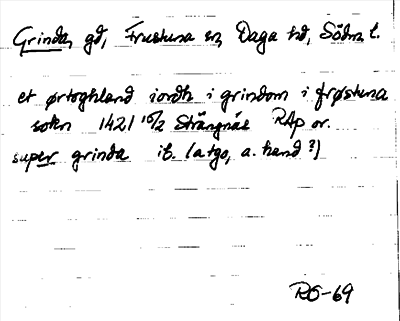 Grinda, gd, Frustuna sn, Daga hd, Södm l.
et ørtoghland iordh i grindom i frøstuna
sokn 1421 10/2 Strängnäs RAp or.
super grinda ib. (atgo, a. hand?)
RO-69